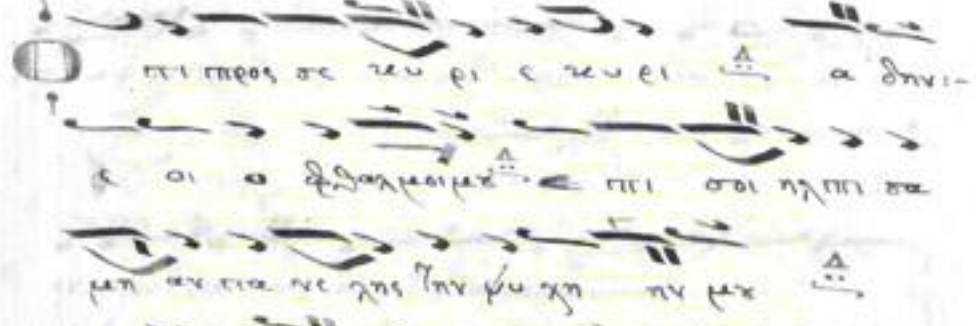 Ο τι προς σε κυ ρι ε κυ ρι Δ
ε οι ο φθαλμοι μȣ Δ ε πι σοι ηλπι σα
μη αν τα νε λης την ψυ χη ην μȣ Δ